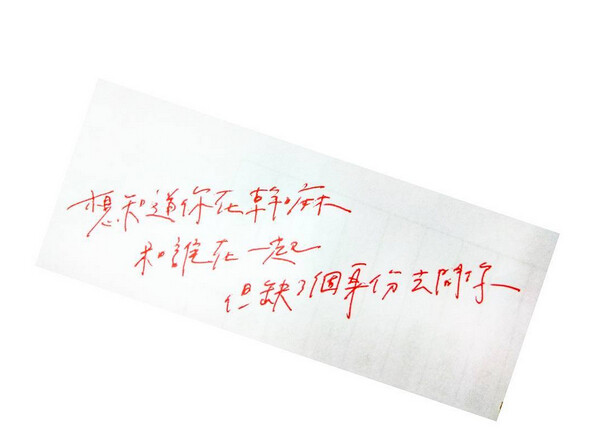 想知道你在幹嘛
和誰在一起
但缺了個身份去問你